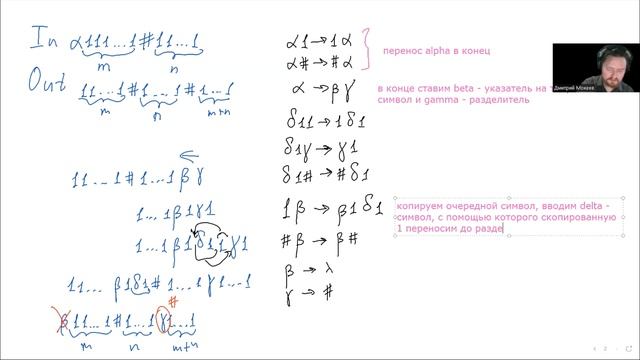 In α111...1#11...1
m n
Out 11...1#1...1#1...1
m n m+n
11...1#1...1βγ
1...1β1γ1
1...1β1δ11γ1
11...β1δ1#1...1γ1...1
#
β11...1#1...1γ1...1
m n m+n
α1→1α
α#→#α
перенос alpha в конец
α→βγ
в конце ставим beta - указатель на
символ и gamma - разделитель
δ11→1δ1
δ1γ→γ1
δ1#→#δ1
1β→β1δ1
#β→β#
β→λ
γ→#
копируем очередной символ, вводим delta -
символ, с помощью которого скопированную
1 переносим до разде
Дмитрий Мокеев